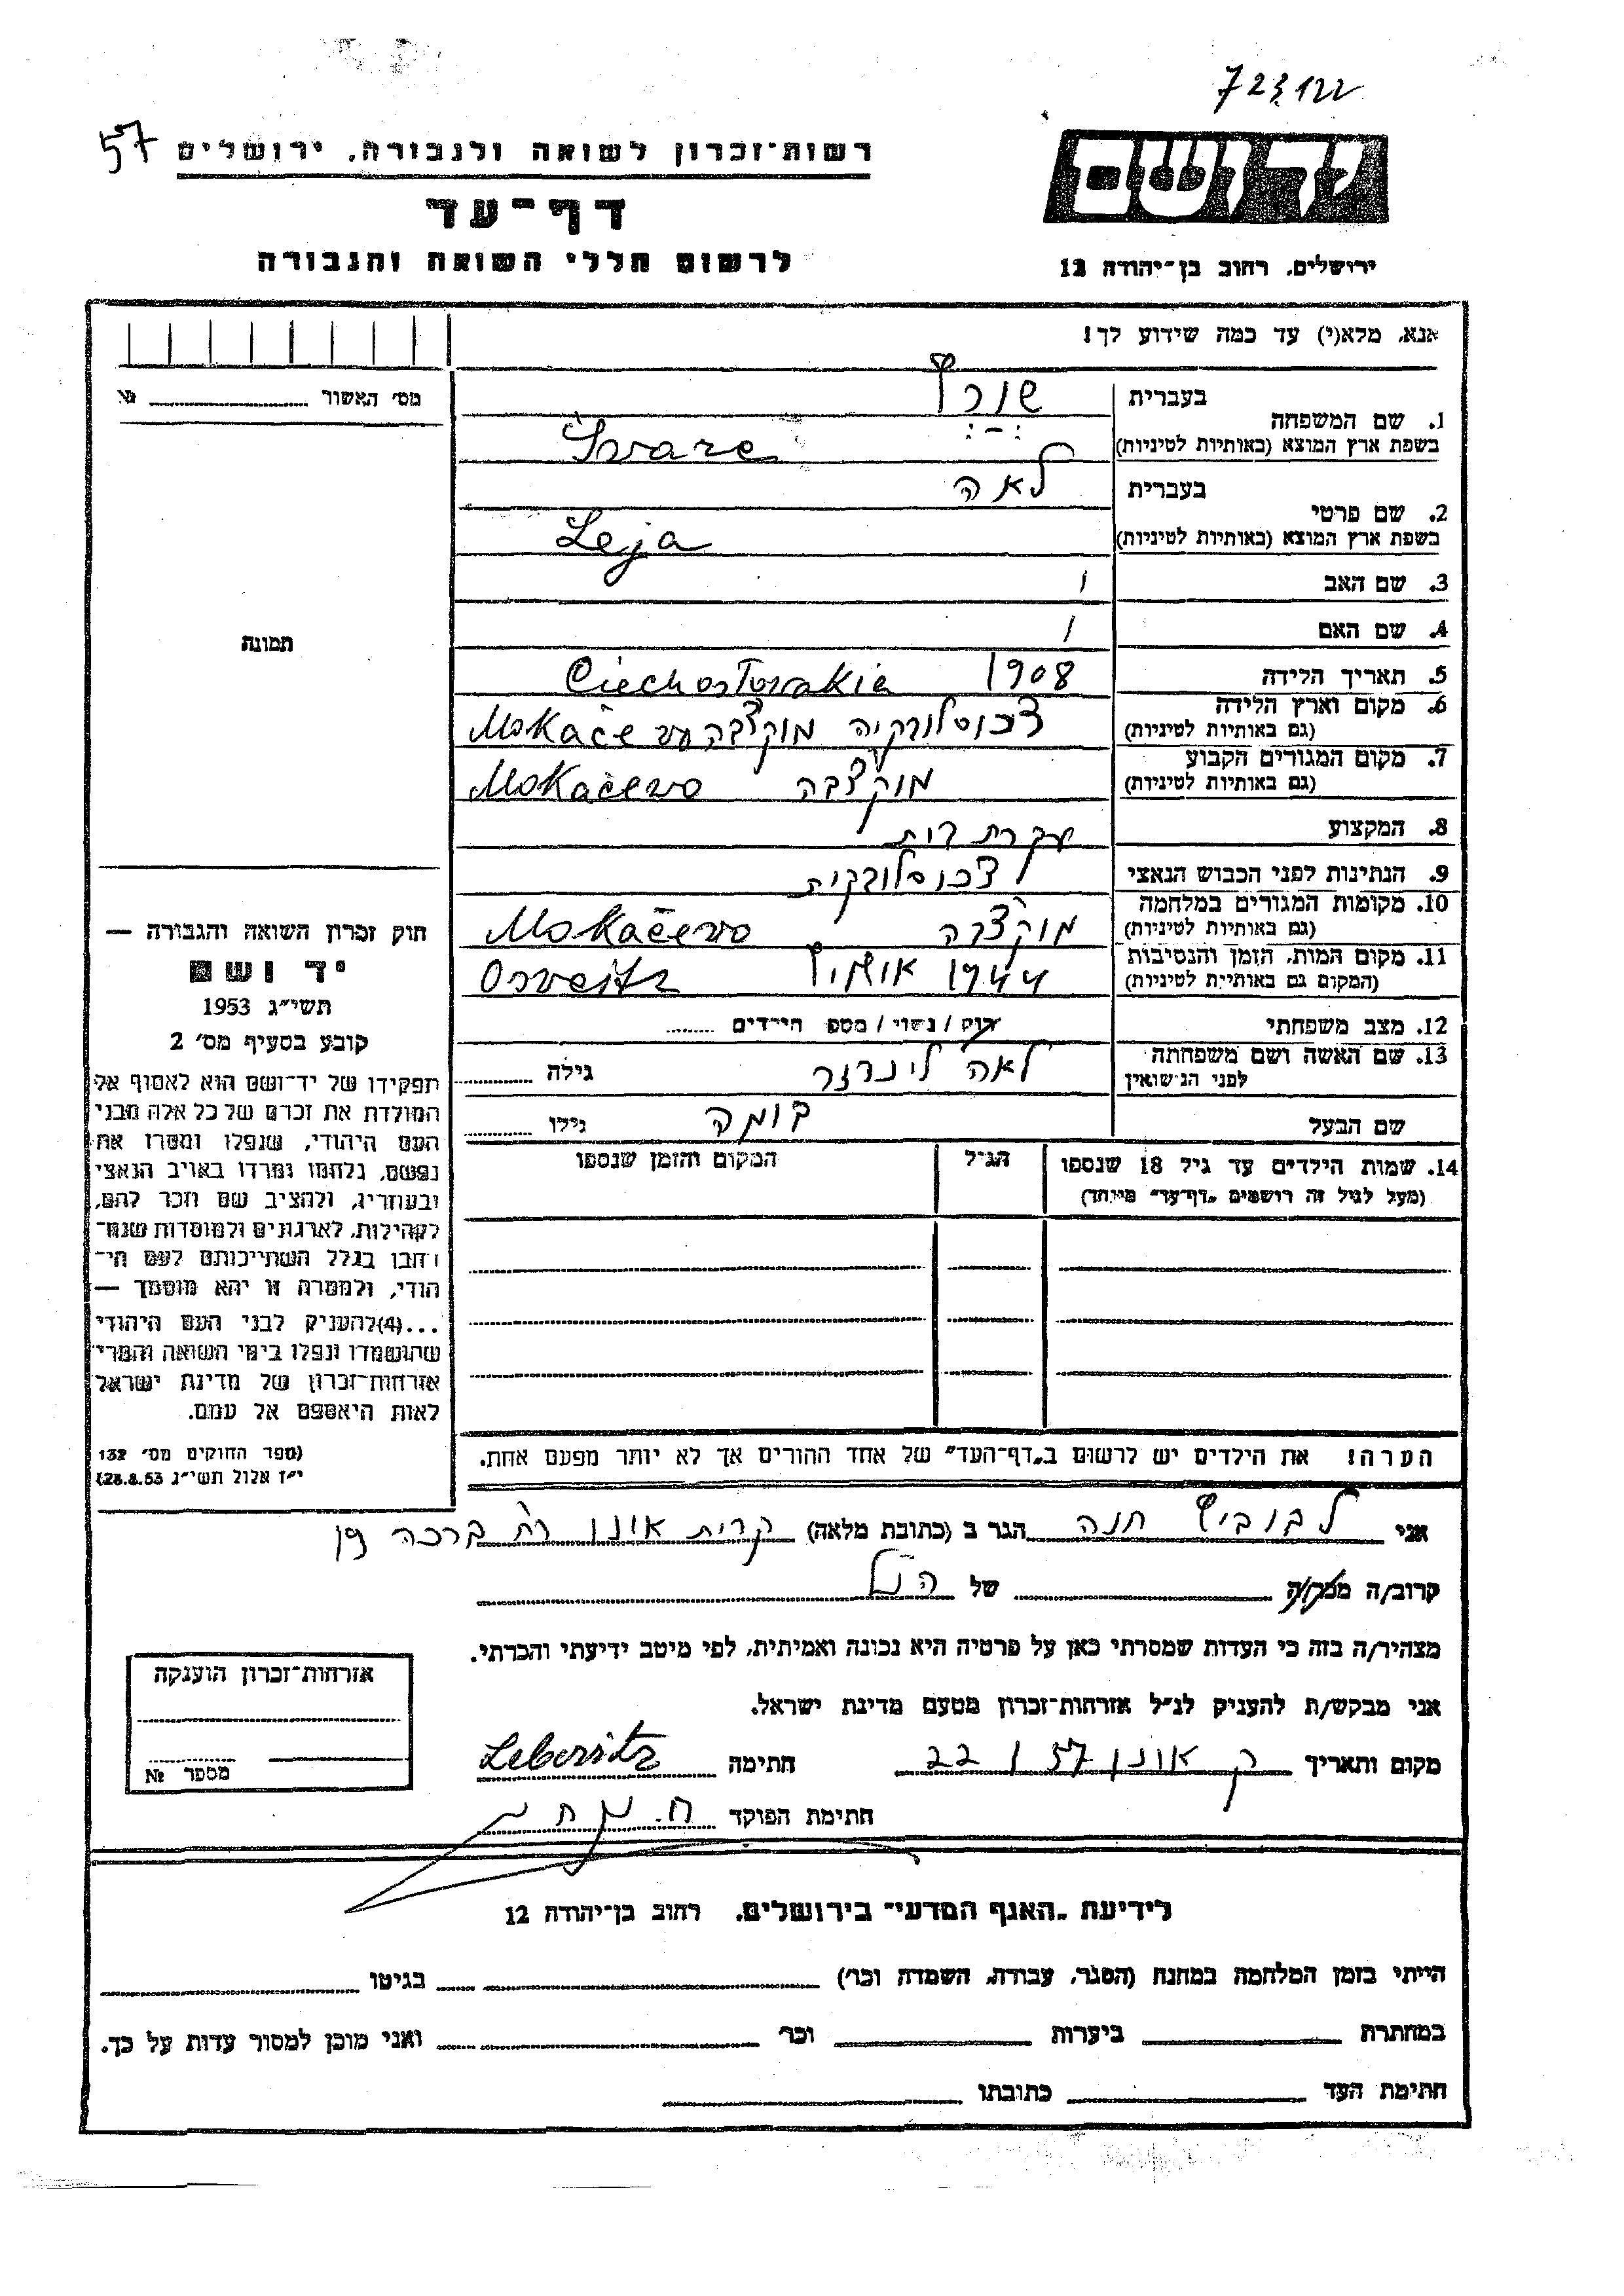 723122
57
רשות־זכרון לשואה ולגבורה, ירושלים
יד ושם
דף־עד
לרשום חללי השואה והגבורה
ירושלים, רחוב בן־יהודה 12
אנא, מלא(י) עד כמה שידוע לך!
מס׳ האשור № 
1. שם המשפחה
בעברית שורץ
בשפת ארץ המוצא (באותיות לטיניות) Svarc
2. שם פרטי
בעברית לאה
בשפת ארץ המוצא (באותיות לטיניות) Leja
3. שם האב /
4. שם האם /
תמונה
5. תאריך הלידה 1908
6. מקום וארץ הלידה
(גם באותיות לטיניות) צ׳כוסלובקיה מוקצ׳בה Mokačevo
7. מקום המגורים הקבוע
(גם באותיות לטיניות) מוקצ׳בה Mokačevo
8. המקצוע עקרת בית
9. הנתינות לפני הכבוש הנאצי צ׳כוסלובקית
10. מקומות המגורים במלחמה
(גם באותיות לטיניות) מוקצ׳בה Mokačevo
11. מקום המות, הזמן והנסיבות
(המקום גם באותיות לטיניות) 1944 אושויץ Osveitz
12. מצב משפחתי רווק / נשוי / מספר הילדים
13. שם האשה ושם משפחתה
לפני הנישואין לאה גילה
שם הבעל גילו
14. שמות הילדים עד גיל 18 שנספו
(מעל לגיל זה רושמים „דף־עד״ מיוחד)
הגיל
המקום והזמן שנספו
חוק זכרון השואה והגבורה —
יד ושם
תשי״ג 1953
קובע בסעיף מס׳ 2
תפקידו של יד־ושם הוא לאסוף אל
המולדת את זכרם של כל אלה מבני
העם היהודי, שנפלו ומסרו את
נפשם, נלחמו ומרדו באויב הנאצי
ובעוזריו, ולהציב שם וזכר להם,
לקהילות, לארגונים ולמוסדות שנח־
רבו בגלל השתייכותם לעם הי־
הודי, ולמטרה זו יהא מוסמך —
...(4) להעניק לבני העם היהודי
שהושמדו ונפלו בימי השואה והמרי
אזרחות־זכרון של מדינת ישראל
לאות היאספם אל עמם.
(ספר החוקים מס׳ 132
י״ז אלול תשי״ג 28.8.53)
הערה! את הילדים יש לרשום ב„דף־העד״ של אחד ההורים אך לא יותר מפעם אחת.
אני לבוביץ חנה הגר ב (כתובת מלאה) קרית אונו
קרוב/ה מכר/ה של הנ״ל
מצהיר/ה בזה כי העדות שמסרתי כאן על פרטיה היא נכונה ואמיתית, לפי מיטב ידיעתי והכרתי.
אני מבקש/ת להעניק לנ״ל אזרחות־זכרון מטעם מדינת ישראל.
מקום ותאריך ק אונו 57 / 22 חתימה Lebovitz
חתימת הפוקד
אזרחות־זכרון הוענקה
מספר №
לידיעת „האגף המדעי״ בירושלים, רחוב בן־יהודה 12
הייתי בזמן המלחמה במחנה (הסגר, עבודה, השמדה וכו׳) בגיטו
במחתרת ביערות וכו׳ ואני מוכן למסור עדות על כך.
חתימת העד כתובתו